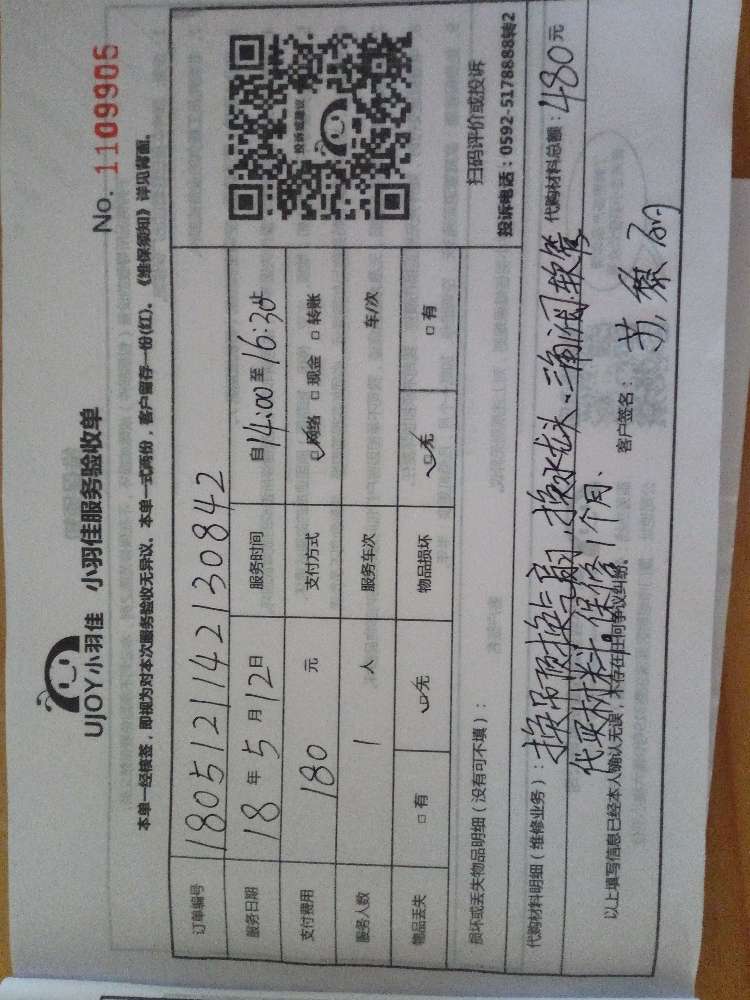 UJOY小羽佳 小羽佳服务验收单
No. 1109906
本单一经核签，即视为对本次服务验收无异议。本单一式两份，客户留存一份(红)。《维保须知》详见背面。
订单编号 1805121142130842
服务日期 18年5月12日 服务时间 自14:00至16:30止
支付费用 180元 支付方式 ☑网络 □现金 □转账
服务人数 1人 服务车次 车/次
物品丢失 □有 ☑无 物品损坏 ☑无 □有
投诉或建议
扫码评价或投诉
投诉电话：0592-5178888转2
损坏或丢失物品明细（没有可不填）：
代购材料明细（维修业务）：换吊顶换气扇、换水龙头、三角阀、软管 代购材料总额：480元
代买材料。保修1个月、
以上填写信息已经本人确认无误，不存在任何争议纠纷。
客户签名：苏